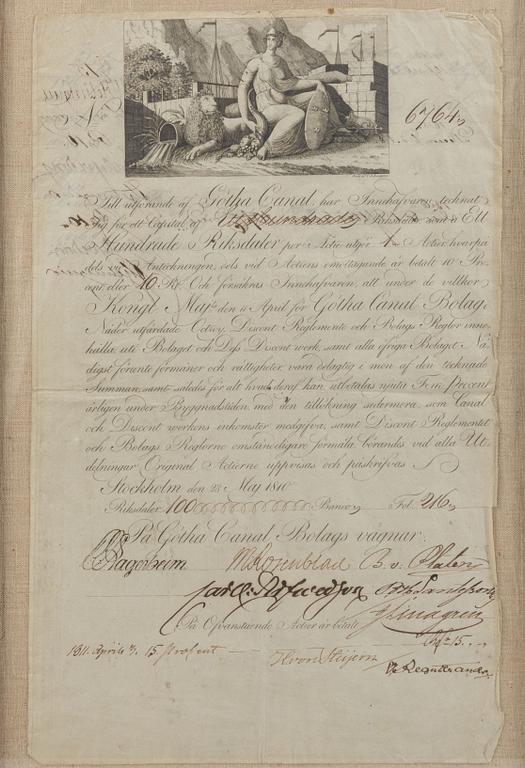 6764
Till utförande af Götha Canal har Innehafvaren tecknat
Sig för ett Capital af Ett Hundrade Riksdaler som a Ett
Hundrade Riksdaler per Actie utgör 1 Actier hvarpå
dels vid Anteckningen, dels vid Actiens emottagande är betalt 10 Pro
cent, eller 10 Rd. Och försäkras Innehafvaren, att under de villkor
Kongl. Maj:t den 11 April för Götha Canal Bolag i
Nåder utfärdade Octroy, Discont Reglemente och Bolags Reglor inne
hålla, uti Bolaget och Dess Discont werk, samt alla öfriga Bolaget Nå
digst förente förmåner och rättigheter vara delagtig i mon af den tecknade
Summan, samt således för allt hvad deraf kan utbetalas njuta Fem Procent
årligen under Byggnadstiden med den tillökning sidermera, som Canal
och Discont werkens inkomster medgifva, samt Discont Reglementet
och Bolags Reglorne omständeligare förmäla börandes vid alla Ut
delningar Original Actierne uppvisas och påskrifvas
Stockholm den 28 Maj 1810
Riksdaler 100 Banco, Fol. 216,
På Götha Canal Bolags vägnar.
Lagerheim M Rosenblad B. v. Platen
Carl Arfwedson
J Lindgren
På Ofvanstående Actier är betalt
1811 Aprile 3. 15. procent Rd 15.